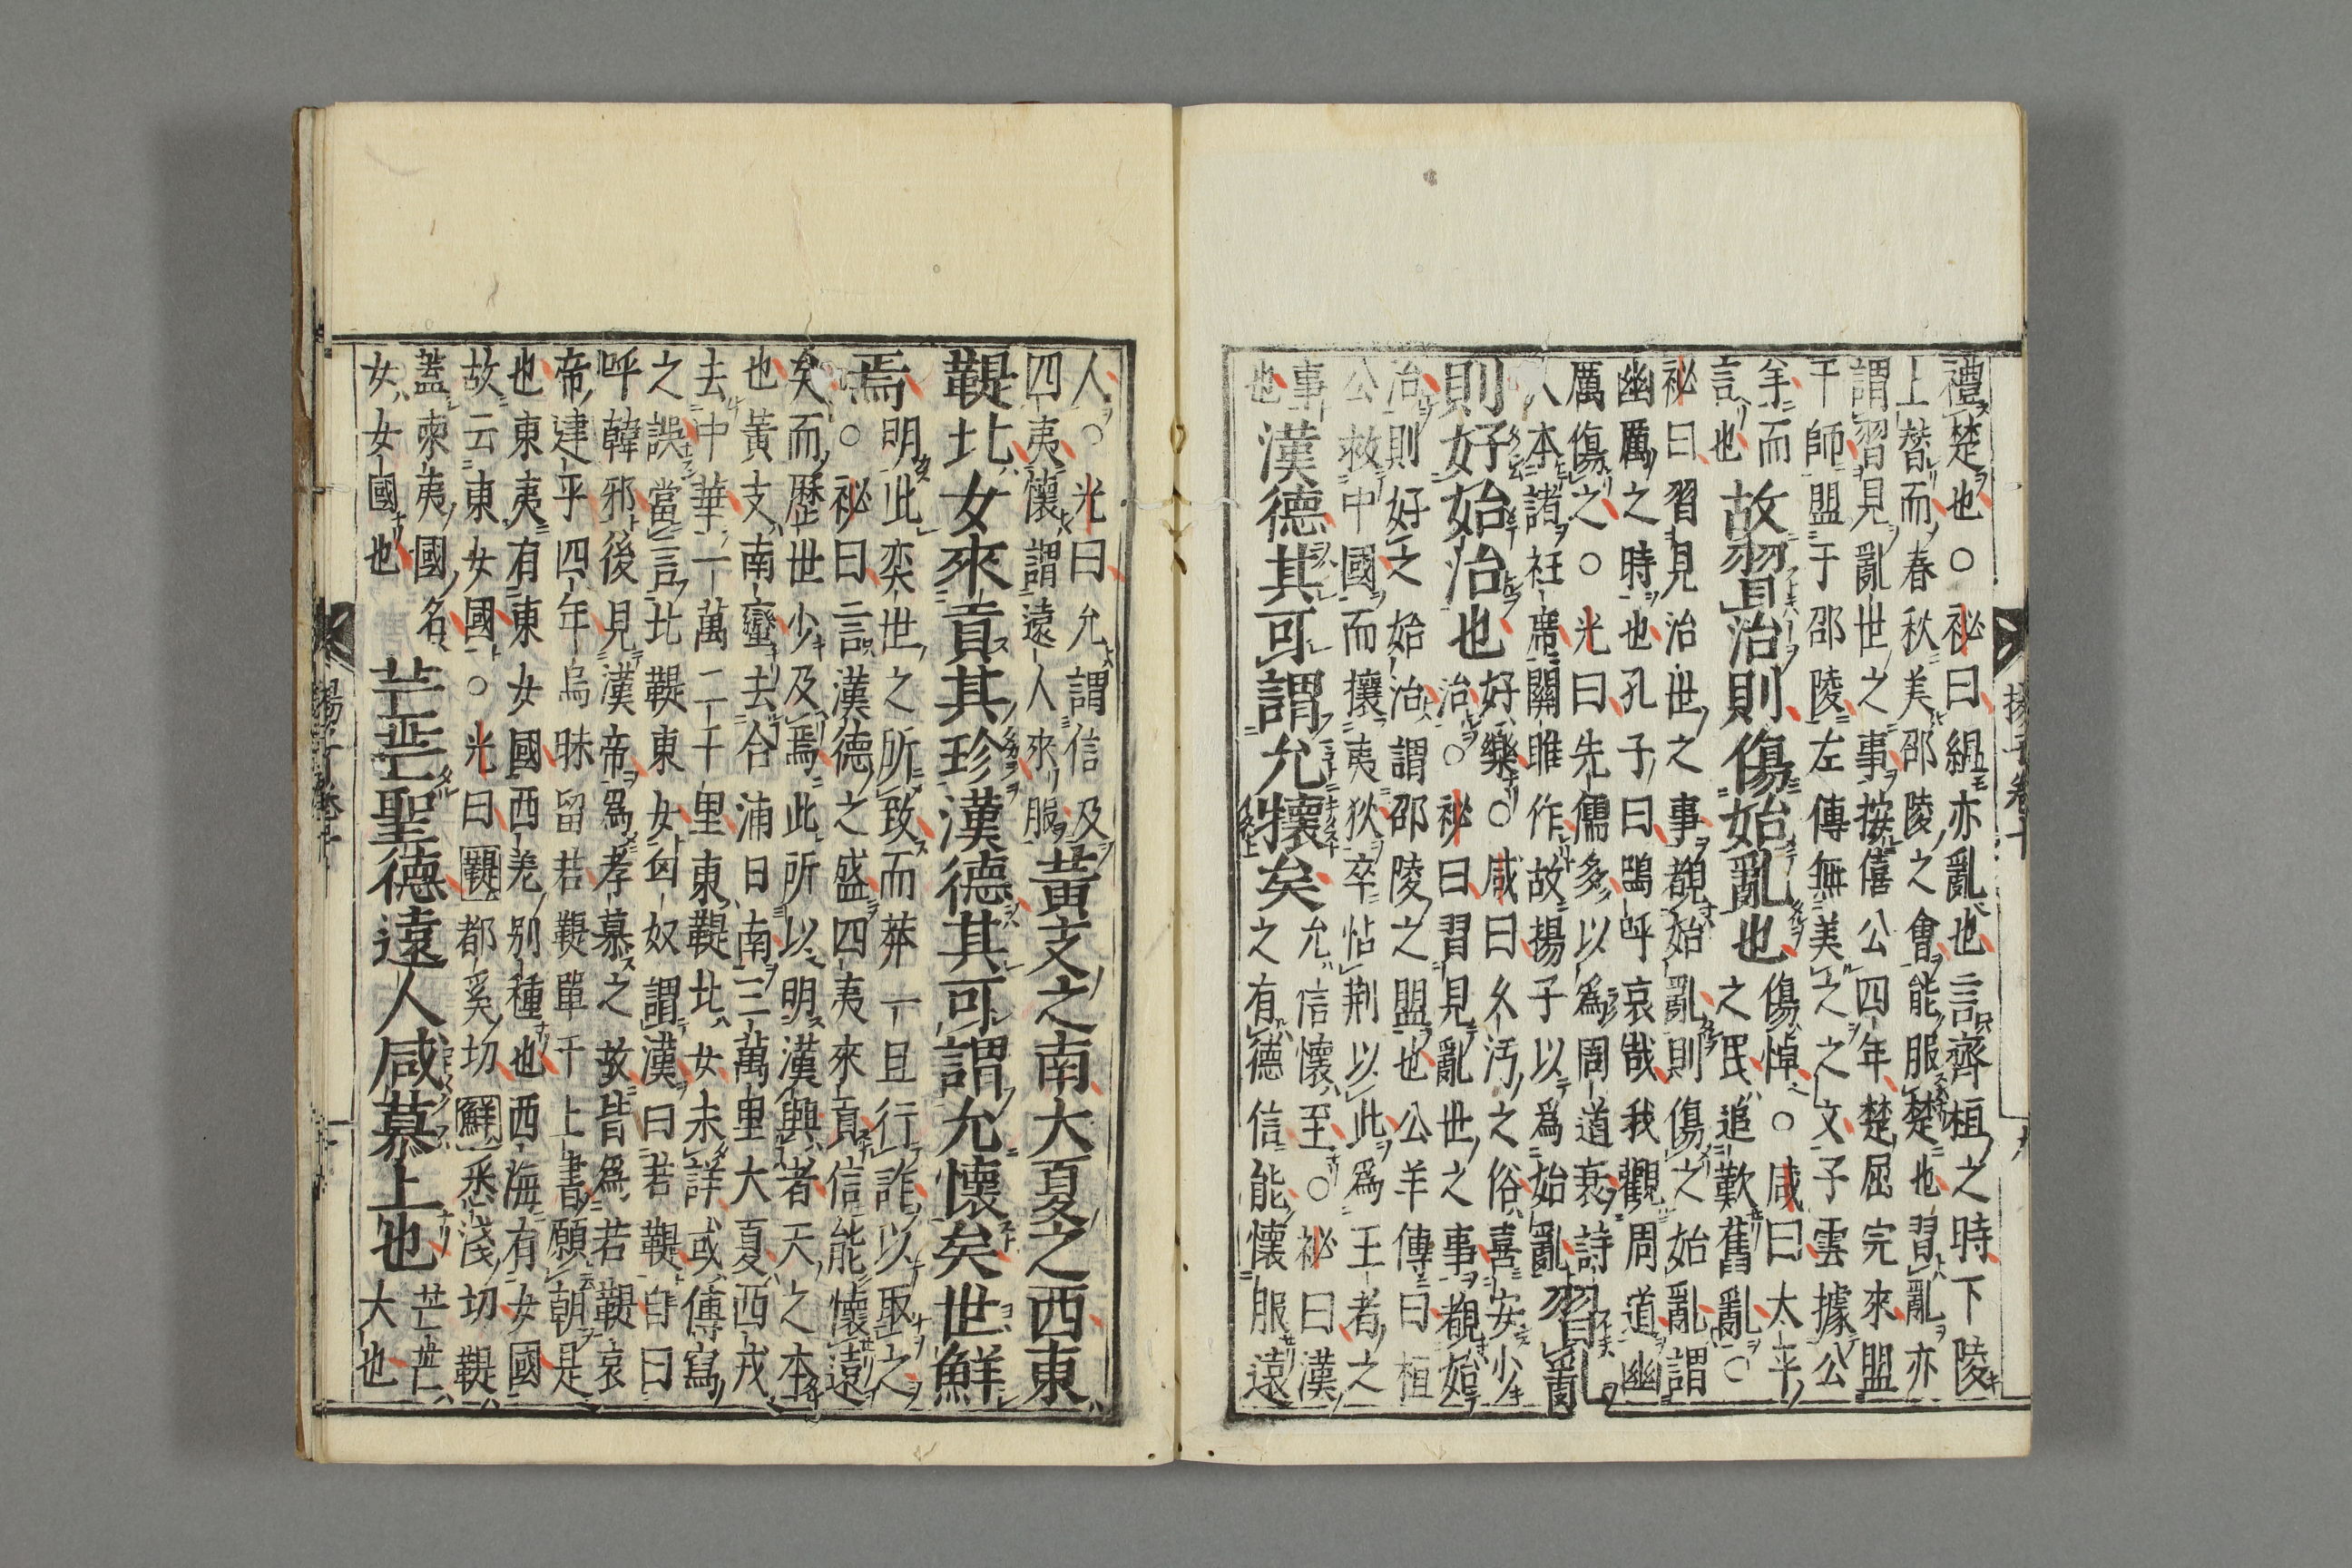 禮楚也○祕曰緼亦亂也言齊桓之時下陵
上替而春秋美邵陵之會能服楚也習亂亦
謂習見亂世之事按僖公四年楚屈完來盟
于師盟于邵陵左傳無美之之文子雲據公
羊而
言也
故習治則傷始亂也
傷悼○咸曰太平
之民追歎舊亂○
祕曰習見治世之事覩始亂則傷之始亂謂
幽厲之時也孔子曰嗚呼哀哉我觀周道幽
厲傷之○光曰先儒多以爲周道衰詩
人本諸衽席關雎作故揚子以爲始亂
習亂
則好始治也
好樂○咸曰久汚之俗喜安少
治○祕曰習見亂世之事覩始
治則好之始治謂邵陵之盟也公羊傳曰桓
公救中國而攘夷狄卒怗荆以此爲王者之
事
也
漢德其可謂允懷矣
允信懷至○祕曰漢
之有德信能懷服遠
人○光曰允謂信及
四夷懷謂遠人來服
黃支之南大夏之西東
鞮北女來貢其珍漢德其可謂允懷矣世鮮
焉
明此奕世之所致而莽一且行詐以取之
○祕曰言漢德之盛四夷來貢信能懷遠
矣而歷世少及焉此所以明漢興者天之本
也黃支南蠻去合浦日南三萬里大夏西戎
去中華一萬二千里東鞮北女未詳或傳寫
之誤當言北鞮東女匈奴謂漢曰若鞮自曰
呼韓邪後見漢帝爲孝慕之故皆爲若鞮哀
帝建平四年烏昧留若鞮單于上書願朝是
也東夷有東女國西羌別種也西海有女國
故云東女國○光曰鞮都奚切鮮悉淺切鞮
蓋東夷國名
女女國也
芒芒聖德遠人咸慕上也
芒芒
大也